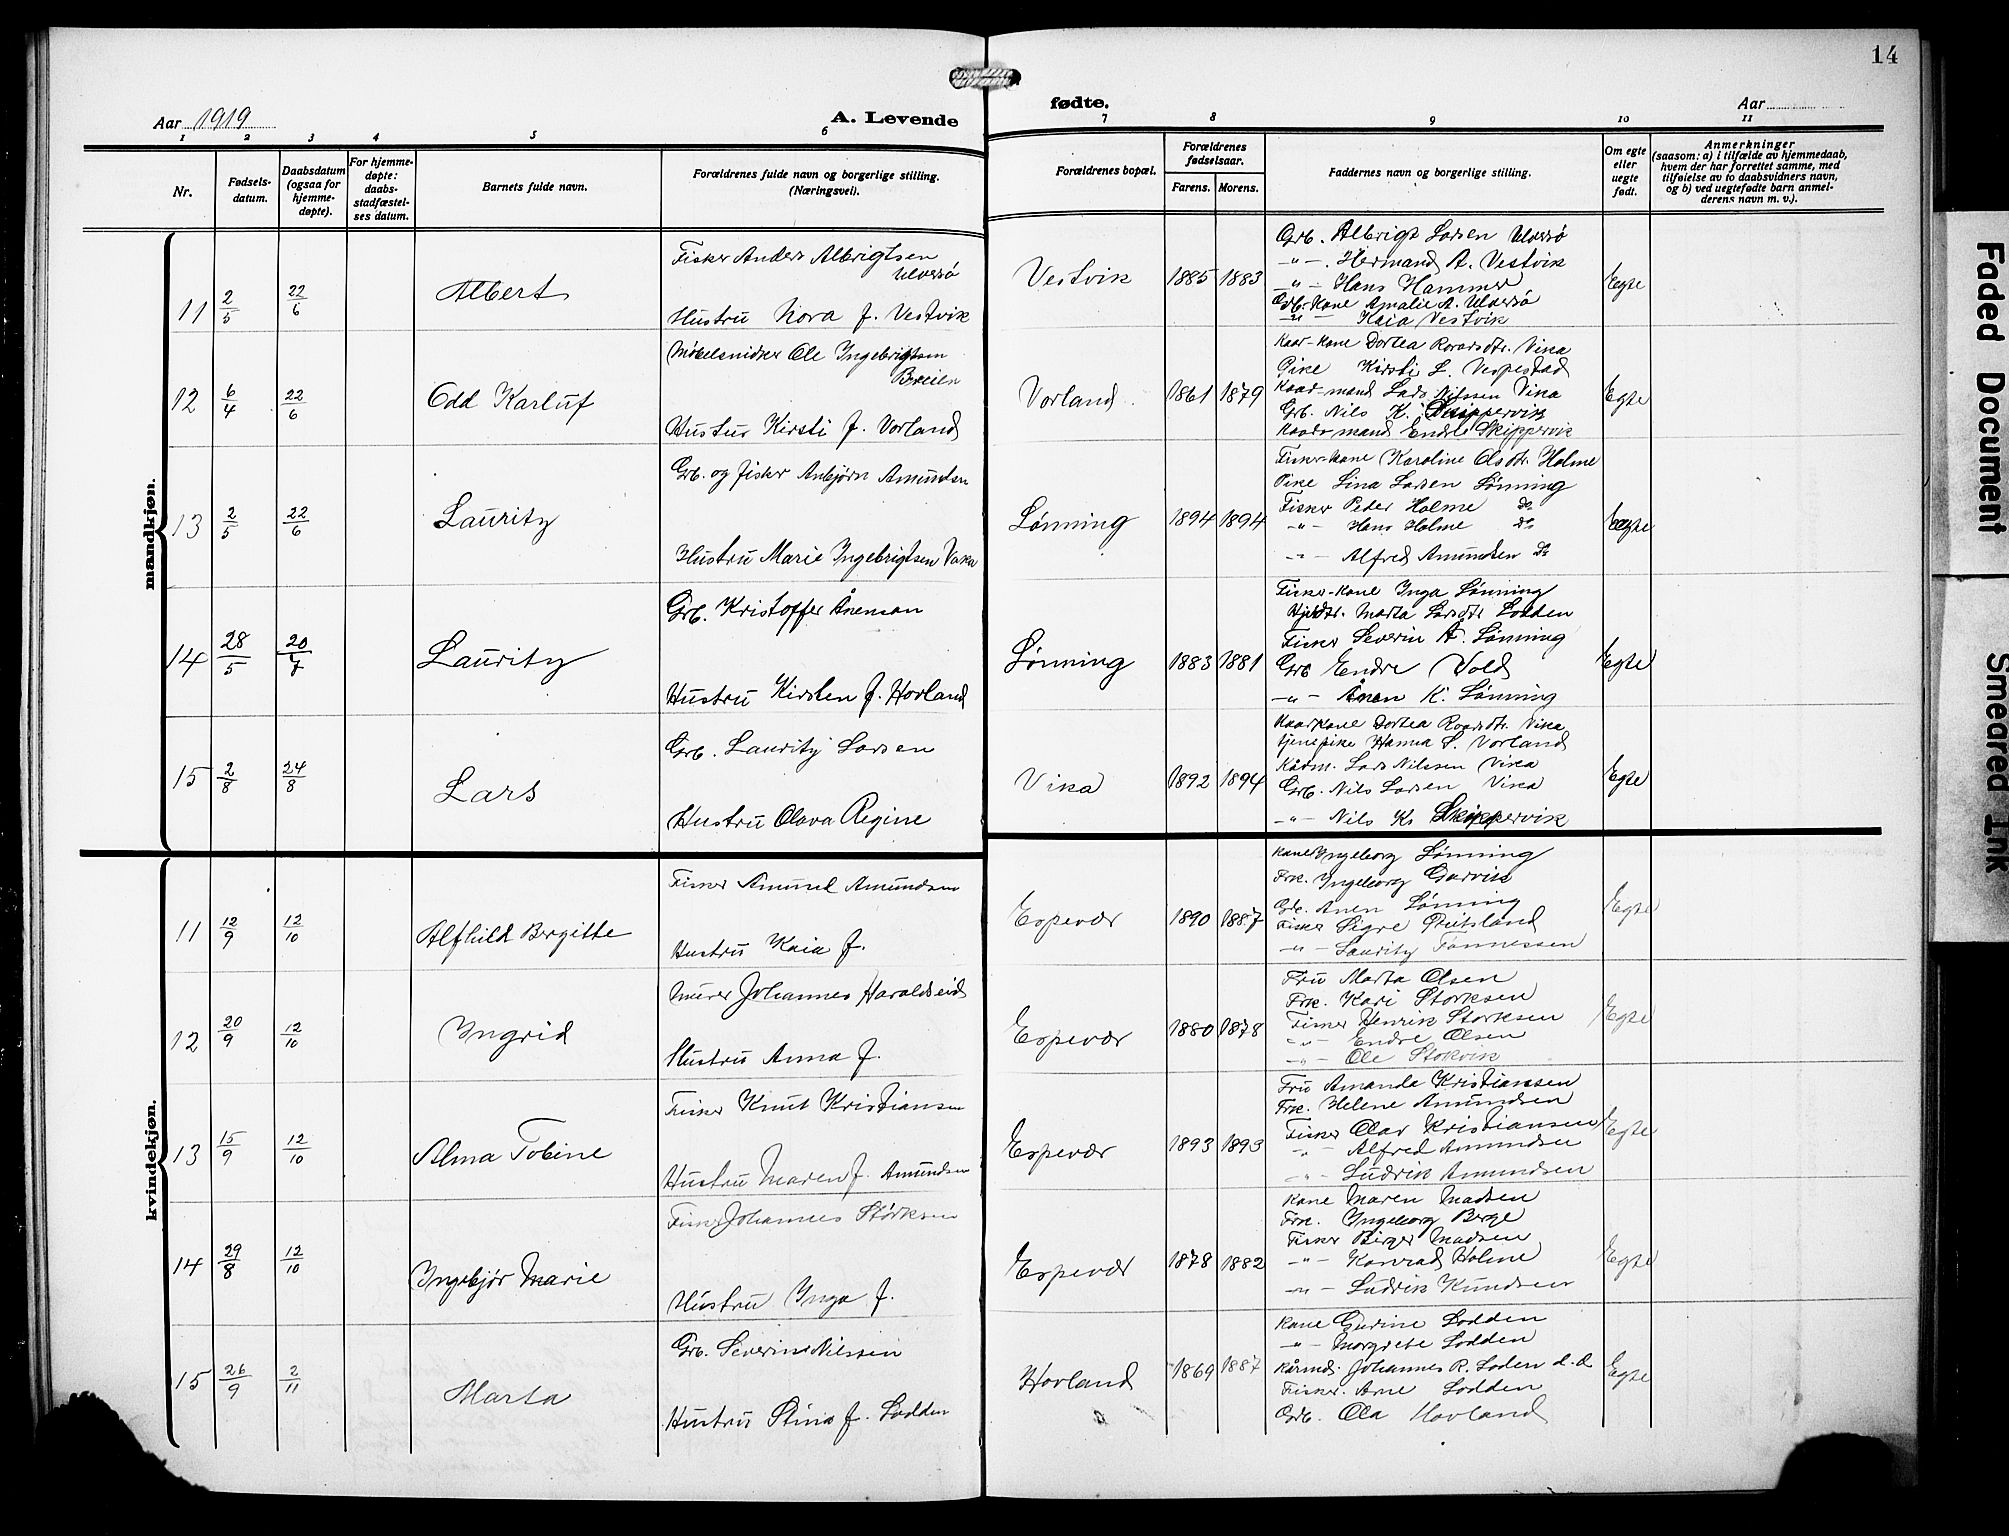 14
Aar 1919
A. Levende
fødte.
Aar
1 2 3 4 5 6 7 8 9 10 11
Nr.
Fødsels-
datum.
Daabsdatum
(ogsaa for
hjemme-
døpte).
For hjemme-
døpte:
daabs-
stadfæstel-
ses datum.
Barnets fulde navn.
Forældrenes fulde navn og borgerlige stilling.
(Næringsvei).
Forældrenes bopæl.
Forældrenes
fødselsaar.
Farens. Morens.
Faddernes navn og borgerlige stilling.
Om egte
eller
uegte
født.
Anmerkninger
(saasom: a) i tilfælde av hjemmedaab,
hvem der har forrettet samme, med
tilføielse av to daabsvidners navn,
og b) ved uegtefødte barn anmel-
derens navn m. v.).
mandkjøn.
11 2/5 22/6 Albert
Fisker Anders Albrigtsen
Ulversø
Hustru Nora f. Vestvik
Vestvik 1885 1883
Grb. Albrigt Larsen Ulversø
-"-. Hermand A. Vestvik
-"- Hans Hammer
Grb. Kone Amalie A. Ulversø
-"- Kaia Vestvik
Egte
12 6/4 22/6 Odd Karluf
Møbelsnidker Ole Ingebrigtsen
Breien
Hustru Kirsti f. Vorland
Vorland 1861 1879
Kaar-kone Dortea Roarsdtr. Vika
Pike Kirsti L. Vespestad
Kaar-mand Lars Nilssen Vika
Grb. Nils K. Skippervik
Kaar mand Endre Skippervik
Egte
13 2/5 22/6 Lauritz
Grb. og fisker Anbjørn Amundsen
Hustru Marie Ingebrigtsen
Lønning 1894 1894
Fisker-kone Karoline Olsdtr. Holme
Pike Lina Larsen Lønning
Fisker Peder Holme do
-"- Hans Holme do
-"- Alfred Amundsen do
Egte
14 28/5 20/7 Lauritz
Grb. Kristoffer Ånenson
Hustru Kirsten f. Hovland
Lønning 1883 1881
Fisker-kone Inga Lønning
Marta Larsdtr. Lodden
Fisker Severin A. Lønning
Grb Endre Vold
-"- Ånen K. Lønning
Egte
15 2/8 24/8 Lars
Grb. Lauritz Larsen
Hustru Olava Regine
Vika 1892 1894
Kaarkone Dortea Roarsdtr. Vika
tjenepike Hanna L. Vorland
Kårm. Lars Nilssen Vika
Grb. Nils Larsen Vika
-"- Nils K. Skippervik
Egte
kvindekjøn.
11 12/9 12/10 Alfhild Bergitte
Fisker Amund Amundsen
Hustru Kaia f.
Espevær 1890 1887
Kone Ingeborg Lønning
Frk. Ingeborg Garvik
Grb. Anen Lønning
Fisker Sigre
-"- Lauritz Tønnessen
Egte
12 20/9 12/10 Ingrid
Murer Johannes Haraldseid
Hustru Anna f.
Espevær 1880 1878
Fru Marta Olsen
Frk. Kari Størksen
Fisker Henrik Størksen
-"- Endre Olsen
-"- Ole Stokvik
Egte
13 15/9 12/10 Alma Tobine
Fisker Knut Kristiansen
Hustru Maren f. Amundsen
Espevær 1893 1893
Fru Amanda Kristiansen
Frk. Helene Amundsen
Fisker Olav Kristiansen
-"- Alfred Amundsen
-"- Ludvik Amundsen
Egte
14 29/8 12/10 Ingebjør Marie
Fisker Johannes Størksen
Hustru Inga f.
Espevær 1878 1882
Kone Maren Madsen
Frk. Ingeborg Berge
Fisker Birger Madsen
-"- Konrad Holme
-"- Ludvik Knudsen
Egte
15 26/9 2/11 Marta
Grb. Severin Nilssen
Hustru Stina f. Lodden
Hovland 1869 1887
Kone Gurine Lodden
-"- Margrete Lodden
Kårmd. Johannes R. Loden d.d.
Fisker. Arne Lodden
Grb. Ola Hovland
Egte
Faded Document
Smeared Ink